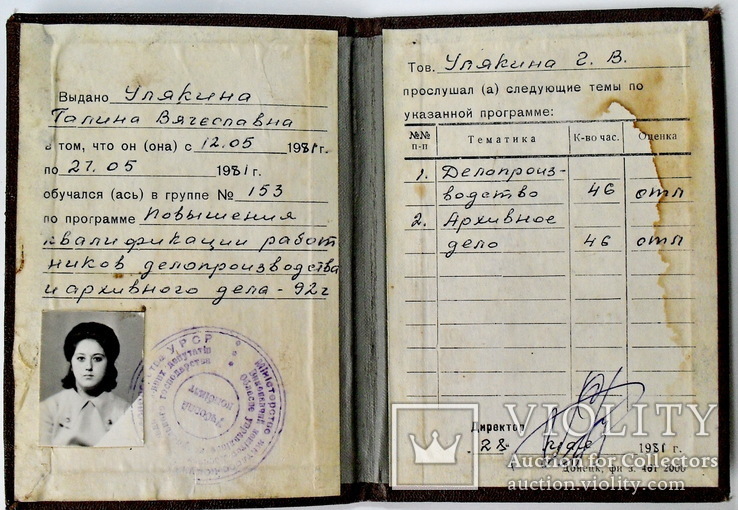 Выдано Улякина
Галина Вячеславна
в том, что он (она) с 12.05 1981г.
по 27.05 1981г.
обучался (ась) в группе № 153
по программе Повышения
квалификации работ
ников делопроизводства
и архивного дела - 92г
УРСР
Міністерство
Учбовий
комбінат
Тов. Улякина Г. В.
прослушал (а) следующие темы по
указанной программе:
№№ п-п Тематика К-во час. Оценка
1. Делопроиз-
водство 46 отл
2. Архивное
дело 46 отл
Директор
28 1981 г.
Донецк, ф-л з. 467 2000
VIOLITY
Auction for Collectors
auction.violity.com